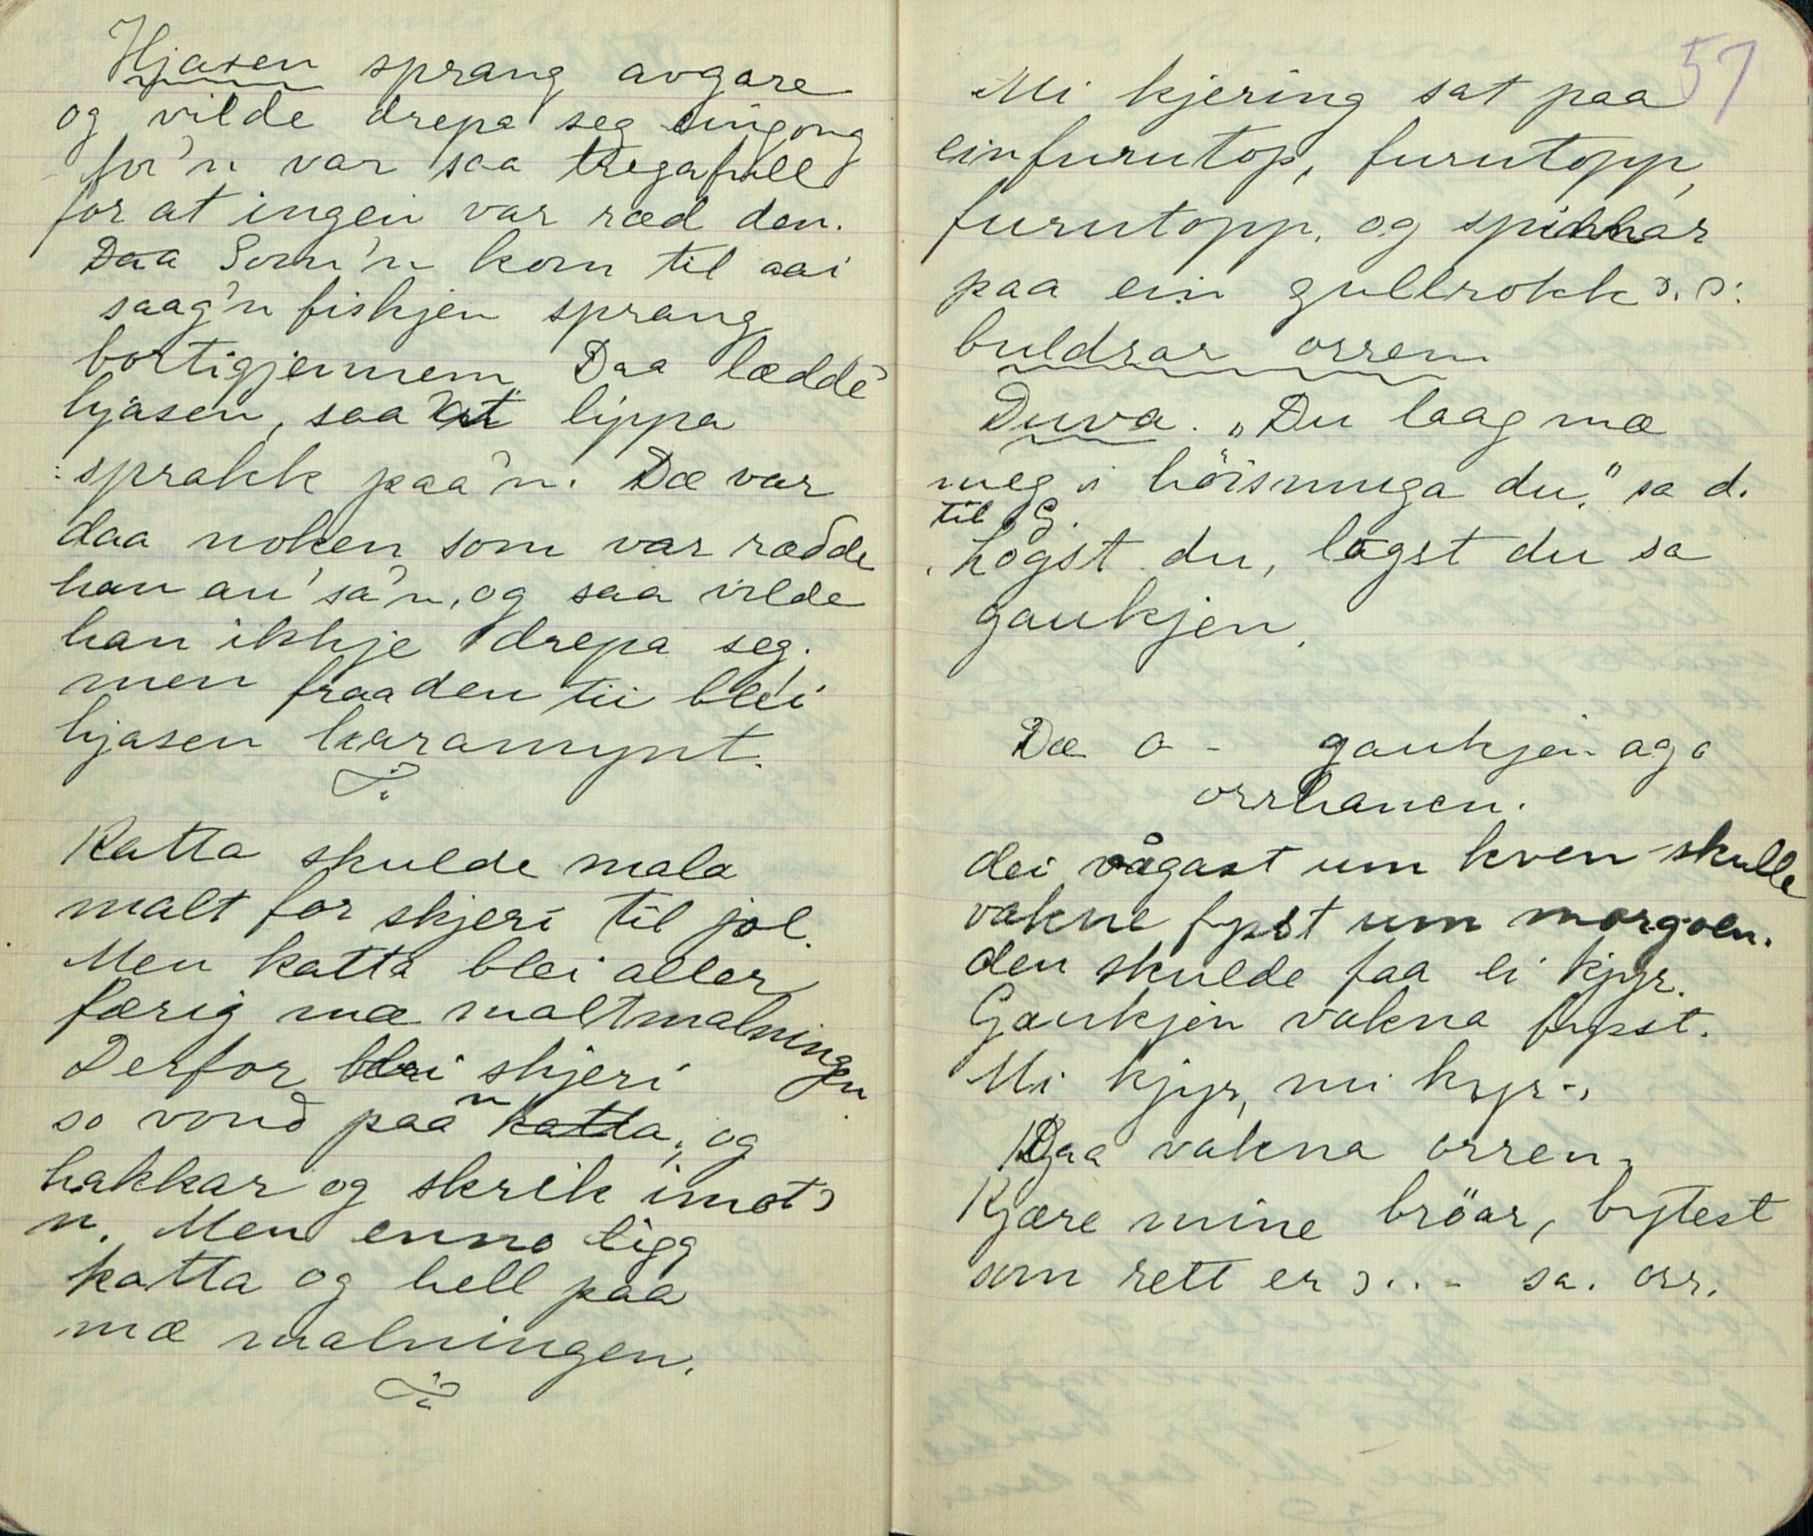 Hjasen sprang avgare
og vilde drepa seg eingong
for'n var saa tregafull
for at ingen var ræd den.
Daa Som'n kom til aai
saag'n fiskjen sprang
bortigjennem Daa lædde
hjasen, saa at lippa
sprakk paa'n. Dæ var
daa noken som var rædde
han an' sa'n, og saa vilde
han ikkje drepa seg.
men fraa den tii blei
hjasen karamynt.
Katta skulde mala
malt for skjeri til jol.
Men katta blei aller
færig mæ maltmalningen
Derfor blei skjeri
so vond paa'n katta, og
hakkar og skrik imot
n. Men enno ligg
katta og hell paa
mæ malningen.
57
Mi kjering sat paa
ein furutop, furutopp,
furutopp, og spinnar
paa ein gullrokk s.s:
buldrar orren
Duva. „Du laag mæ
meg i höismuga du," sa d.
til G.
högst du, lagst du sa
gaukjen.
Dæ o - gaukjen aga
orrhanen.
dei vågast um kven skulle
vakne fyst um morgoen.
den skulde faa ei kjyr.
Gaukjen vakna fyrst.
Mi kjyr, mi kyr -,
Daa vakna orren,
Kjære mine bröar, bytest
som rett er s.. - sa. orr.